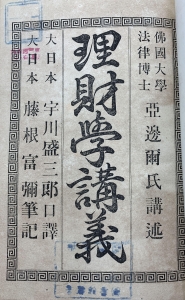 佛國大學
法律博士
亞邊爾氏講述
理財學講義
大日本 宇川盛三郎口譯
大日本 藤根富彌筆記